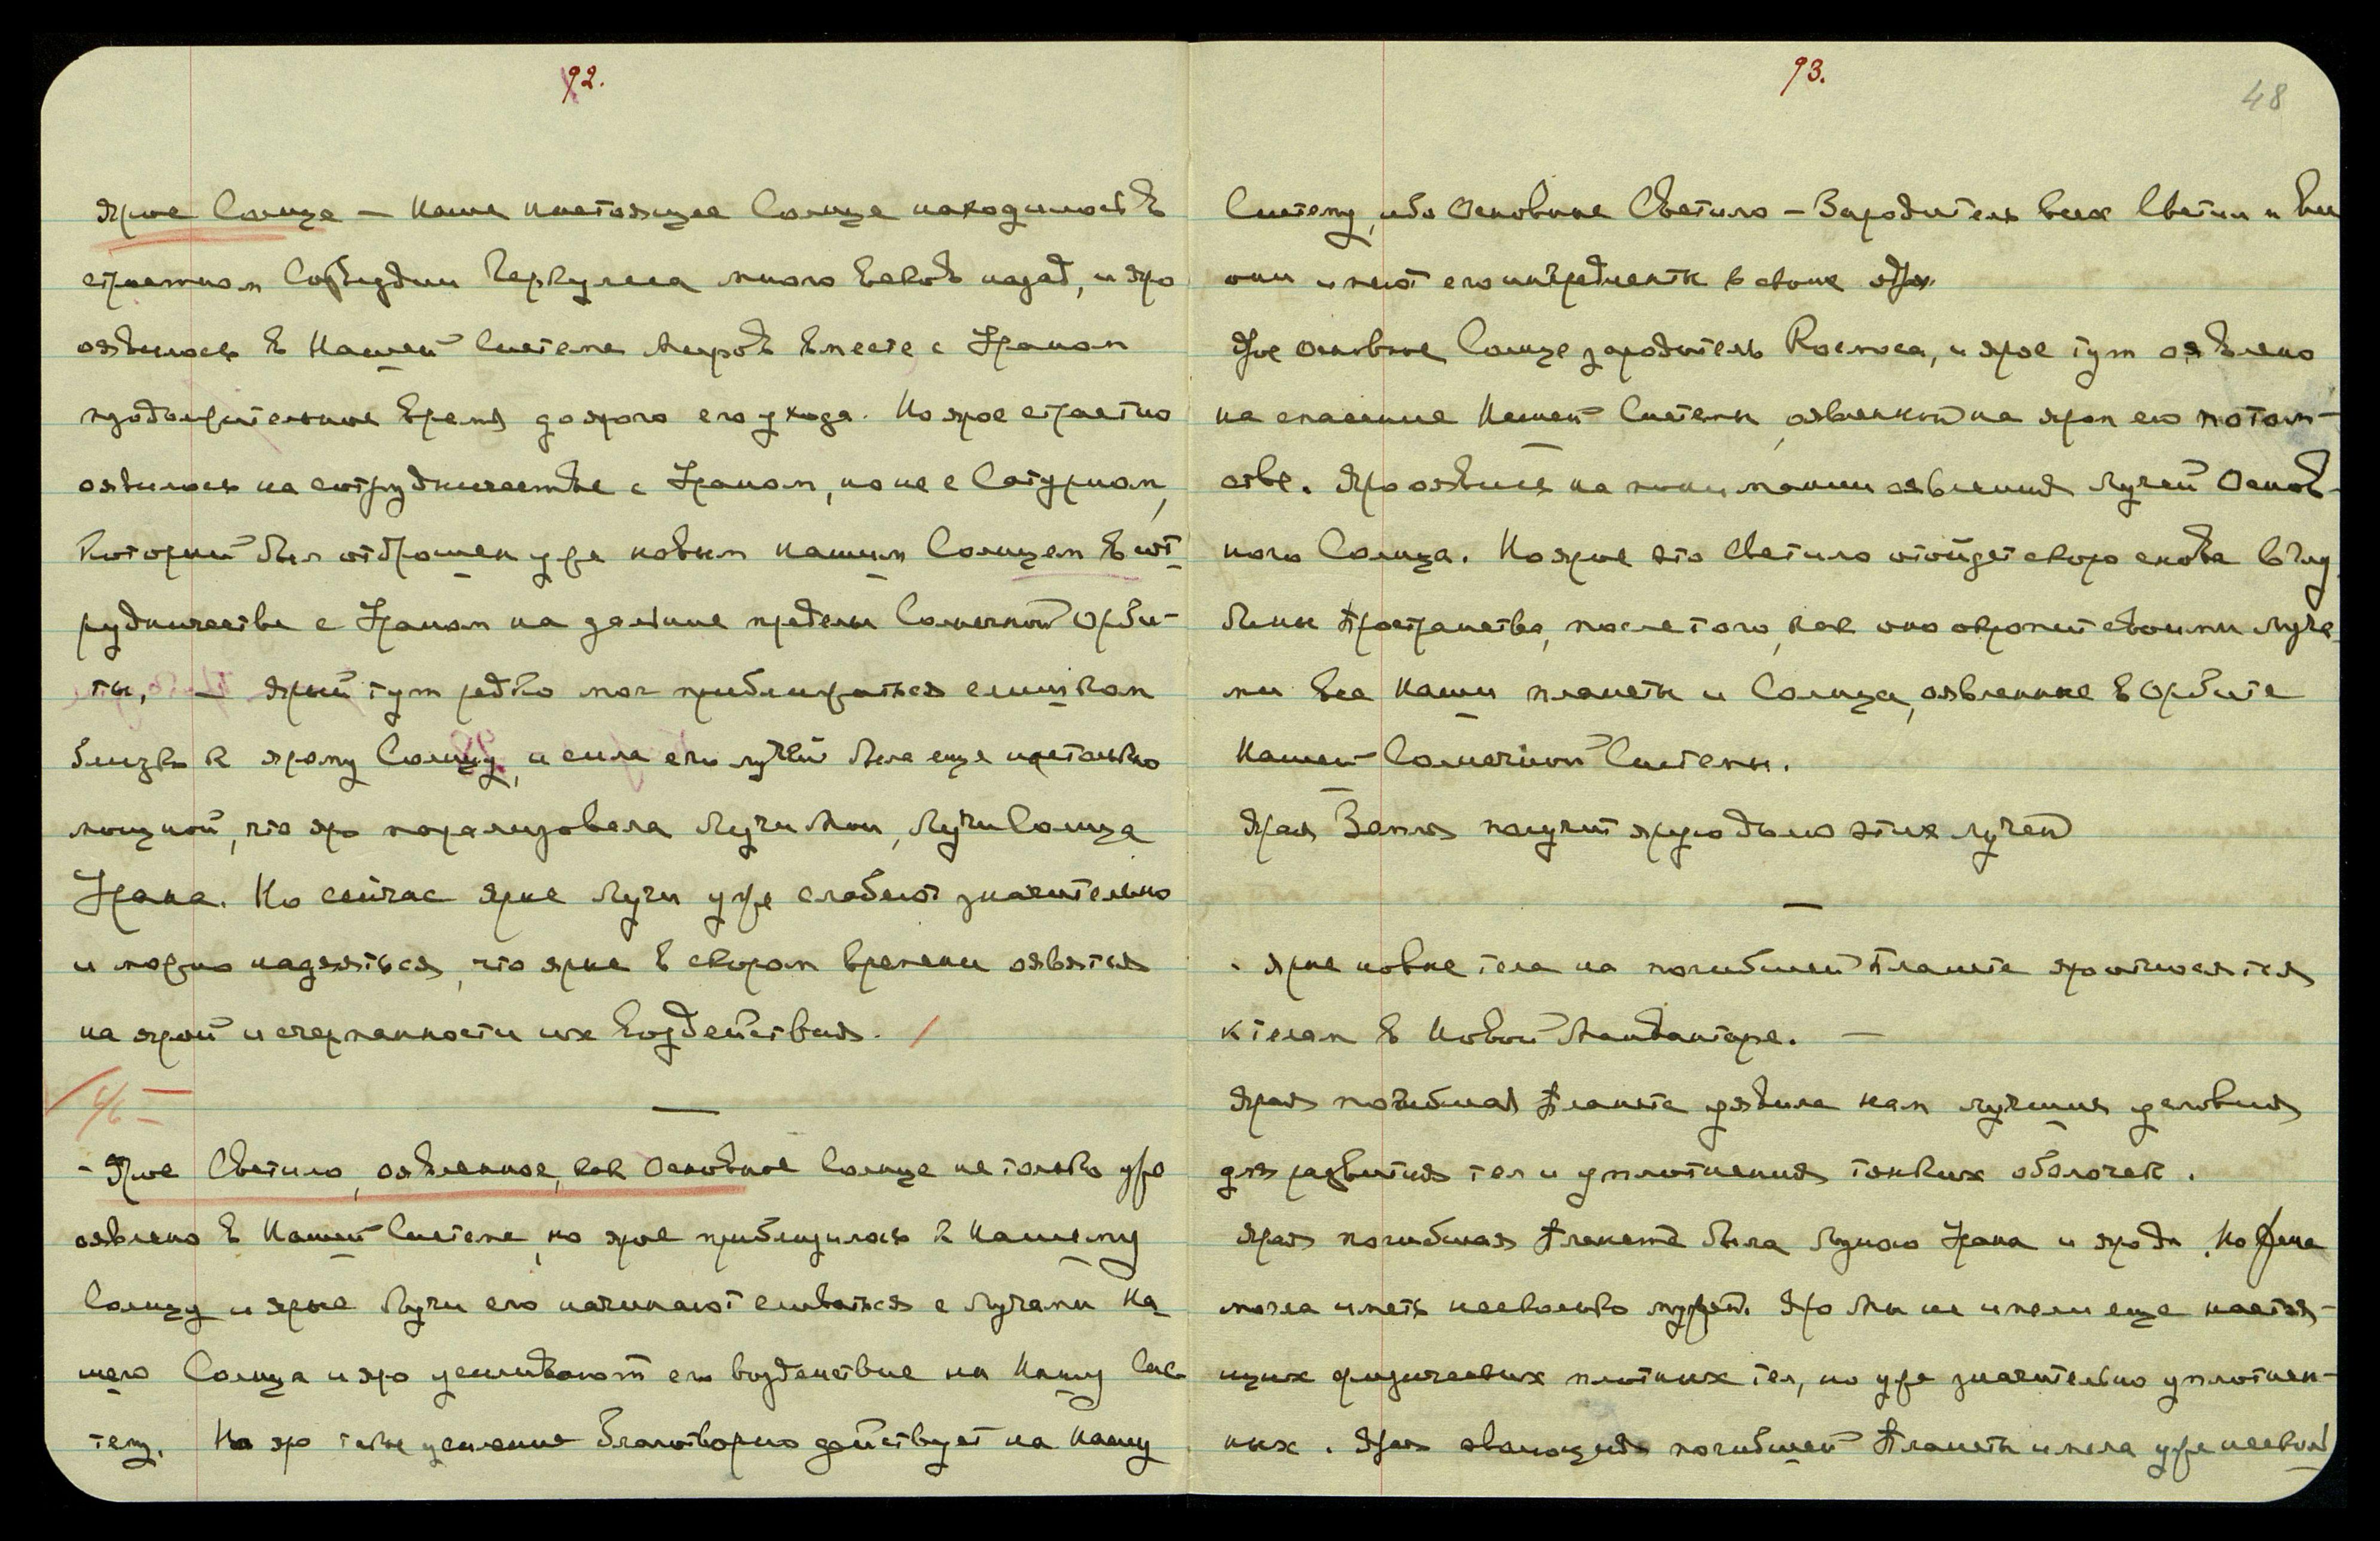 92.
Ярое Солнце – Наше настоящее Солнце находилось в
страстном Созвездии Геркулеса много веков назад, и яро
оявилось в Нашей Системе Миров вместе с Ураном
продолжительное время до ярого его ухода. Но ярое страстно
оявилось на сотрудничестве с Ураном, но не с Сатурном,
который был отброшен уже новым нашим Солнцем в сот-
рудничестве с Ураном на дальние пределы Солнечной Орби-
ты, – Ярый тут редко мог приближаться слишком
близко к ярому Солнцу, и сила его лучей была еще настолько
мощной, что яро парализовала Лучи Мои, Лучи Солнца
Урана. Но сейчас ярые Лучи уже слабеют значительно
и можно надеяться, что ярые в скором времени оявятся
на ярой исчерпанности их воздействия.
4/6
- Ярое Светило, оявленное, как Основное Солнце не только уже
оявлено в Нашей Системе, но ярое приблизилось к Нашему
Солнцу и ярые Лучи его начинают сливаться с Лучами На-
шего Солнца и яро усиливают его воздействие на Нашу Сис-
тему. Но яро такое усиление благотворно действует на Нашу
93.
48
Систему, ибо Основное Светило – Зародитель всех Светил и все
они имеют его ингредиенты в своих
Ярое основное Солнце зародитель Космоса, и ярое тут оявлено
на спасение Нашей Системы, оявленной на яром его потом-
стве. Яро оявись на понимании оявления Лучей Основ-
ного Солнца. Но ярое это Светило отойдет скоро снова в Глу-
бины Пространства, после того, как оно окропит своими Луча-
ми все Наши планеты и Солнца, оявленные в Орбите
Нашей Солнечной Системы.
Ярая Земля получит ярую долю этих лучей
—
- Ярые новые тела на погибшей Планете яро относятся
к телам в Новой Манвантаре. —
Ярая погибшая Планета уявила нам лучшие условия
для развития тел и уплотнения тонких оболочек.
Ярая погибшая Планета была Луною Урана и яро Жена
могла иметь несколько мужей. Яро Мы не имели еще настоя-
щих физических плотных тел, но уже значительно уплотнен-
ных. Ярая эволюция погибшей Планеты имела уже несколь